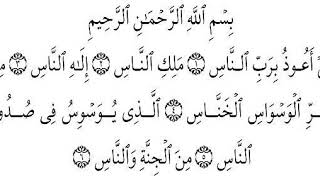 بِسْمِ ٱللَّهِ ٱلرَّحْمَـٰنِ ٱلرَّحِيمِ
أَعُوذُ بِرَبِّ ٱلنَّاسِ ١ مَلِكِ ٱلنَّاسِ ٢ إِلَـٰهِ ٱلنَّاسِ ٣
ـرِّ ٱلْوَسْوَاسِ ٱلْخَنَّاسِ ٤ ٱلَّذِى يُوَسْوِسُ فِى صُدُو
ٱلنَّاسِ ٥ مِنَ ٱلْجِنَّةِ وَٱلنَّاسِ ٦